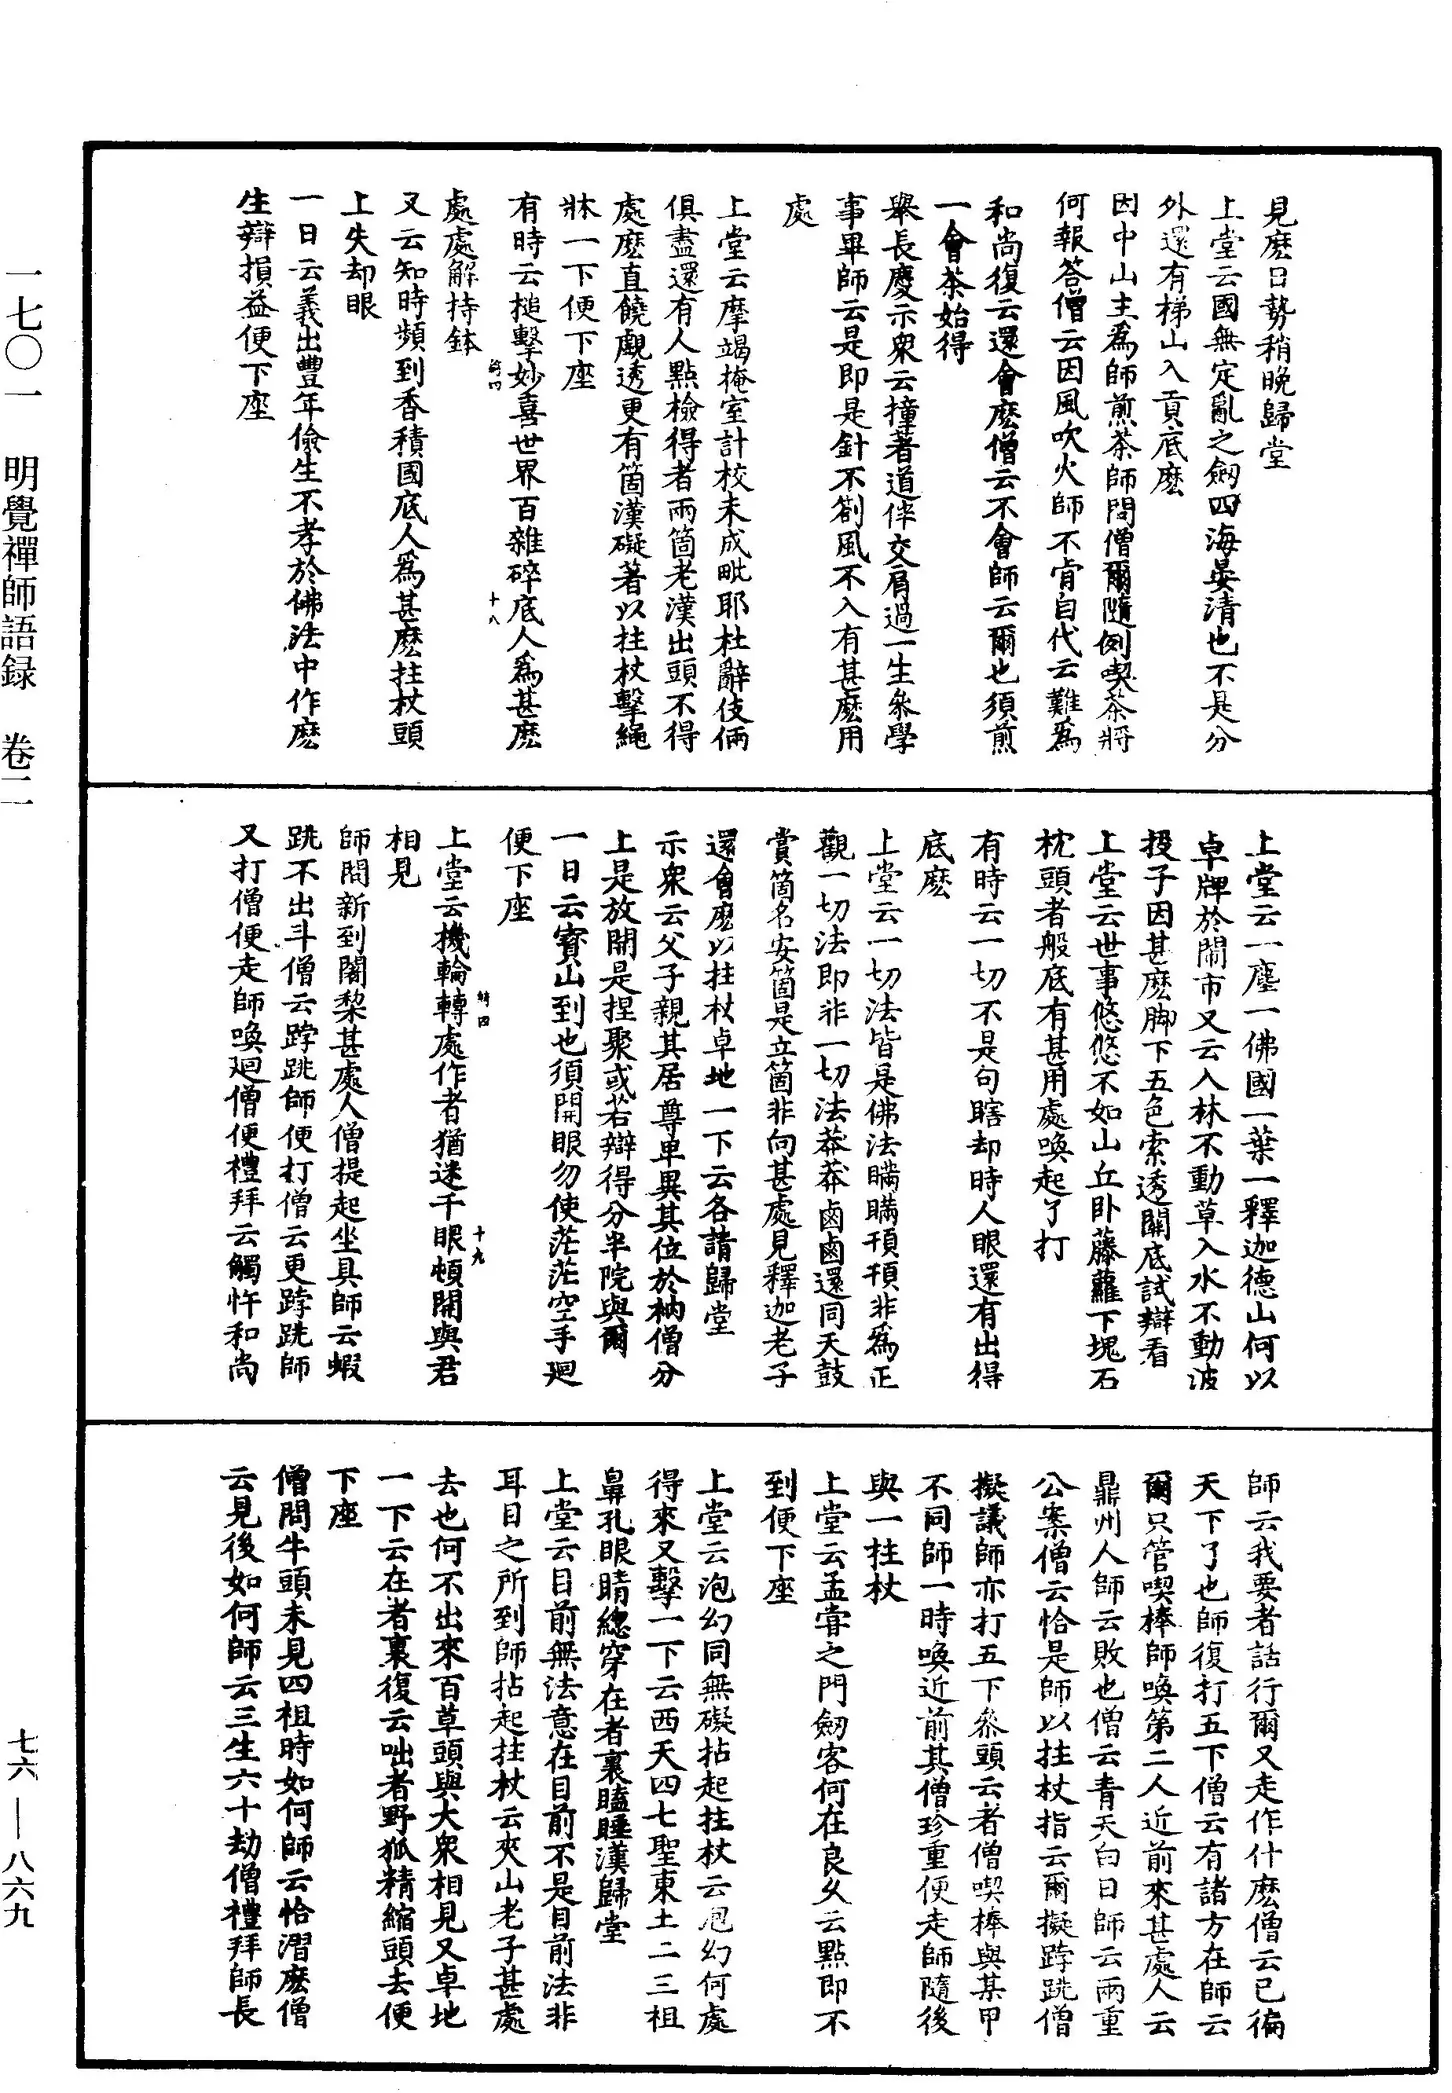 見麽日勢稍晚歸堂
上堂云國無定亂之劒四海晏清也不是分
外還有梯山入貢底麽
因中山主爲師煎茶師問僧爾隨例喫茶將
何報答僧云因風吹火師不肯自代云難爲
和尚復云還會麽僧云不會師云爾也須煎
一會茶始得
舉長慶示衆云撞著道伴交肩過一生參學
事畢師云是即是針不劄風不入有甚麽用
處
上堂云摩竭掩室計校未成毗耶杜辭伎倆
俱盡還有人點檢得者兩箇老漢出頭不得
處麽直饒覰透更有箇漢礙著以拄杖擊繩
牀一下便下座
有時云搥擊妙喜世界百雜碎底人爲甚麽
處處解持鉢
又云知時頻到香積國底人爲甚麽拄杖頭
上失却眼
一日云義出豐年儉生不孝於佛法中作麽
生辯損益便下座
上堂云一塵一佛國一葉一釋迦德山何以
卓牌於鬧市又云入林不動草入水不動波
投子因甚麽脚下五色索透關底試辯看
上堂云世事悠悠不如山丘卧藤蘿下塊石
枕頭者般底有甚用處喚起了打
有時云一切不是句瞎却時人眼還有出得
底麽
上堂云一切法皆是佛法瞞瞞頇頇非爲正
觀一切法即非一切法莽莽鹵鹵還同天鼓
賞箇名安箇是立箇非向甚處見釋迦老子
還會麽以拄杖卓地一下云各請歸堂
示衆云父子親其居尊卑異其位於衲僧分
上是放開是捏聚或若辯得分半院與爾
一日云寳山到也須開眼勿使茫茫空手廻
便下座
上堂云機輪轉處作者猶迷千眼頓開與君
相見
師問新到闍棃甚處人僧提起坐具師云蝦
跳不出斗僧云𨁝跳師便打僧云更𨁝跳師
又打僧便走師喚廻僧便禮拜云觸忤和尚
師云我要者話行爾又走作什麽僧云已徧
天下了也師復打五下僧云有諸方在師云
爾只管喫棒師喚第二人近前來甚處人云
鼎州人師云敗也僧云青天白日師云兩重
公案僧云恰是師以拄杖指云爾擬𨁝跳僧
擬議師亦打五下參頭云者僧喫棒與某甲
不同師一時喚近前其僧珍重便走師隨後
與一拄杖
上堂云孟嘗之門劒客何在良久云點即不
到便下座
上堂云泡幻同無礙拈起拄杖云泡幻何處
得來又擊一下云西天四七聖東土二三祖
鼻孔眼睛緫穿在者裏瞌睡漢歸堂
上堂云目前無法意在目前不是目前法非
耳目之所到師拈起拄杖云夾山老子甚處
去也何不出來百草頭與大衆相見又卓地
一下云在者裏復云咄者野狐精縮頭去便
下座
僧問牛頭未見四祖時如何師云恰㴞麽僧
云見後如何師云三生六十劫僧禮拜師長
綺四
十八
綺四
十九
一七〇一　明覺禪師語録　卷二
七六—八六九